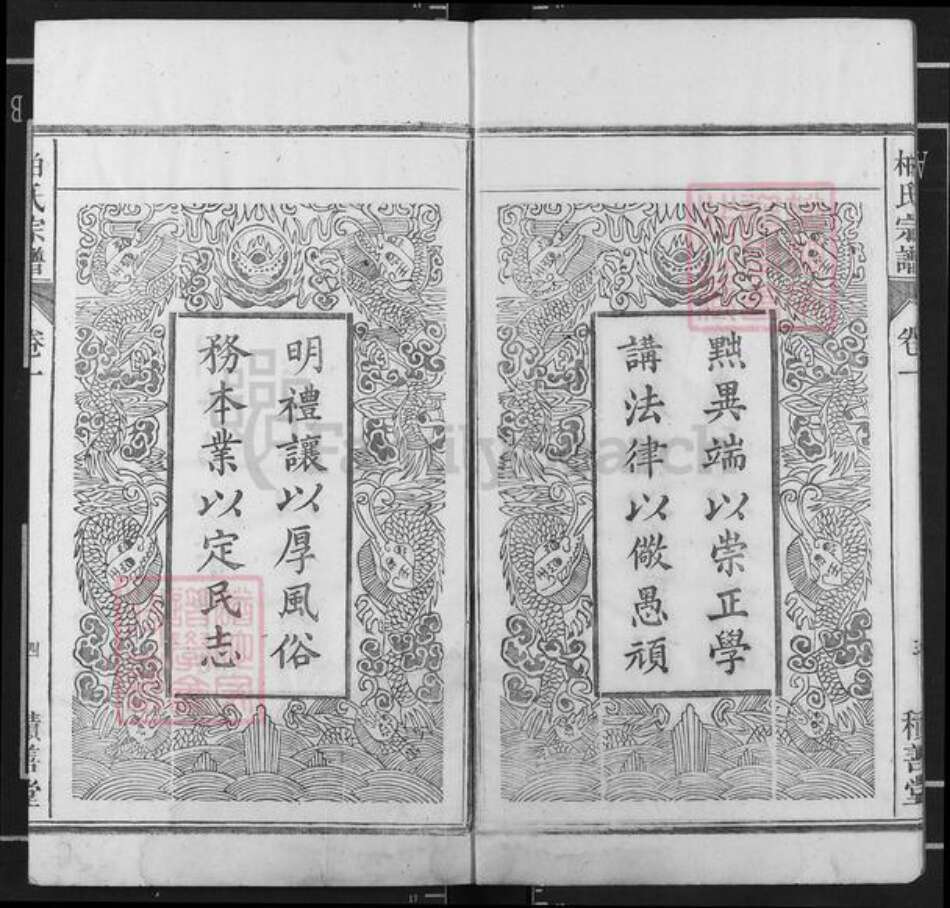 柏氏宗譜
卷一
積善堂
黜異端以崇正學
講法律以儆愚頑
明禮讓以厚風俗
務本業以定民志
柏氏宗譜
卷一
四
積善堂
FamilySearch
B
A